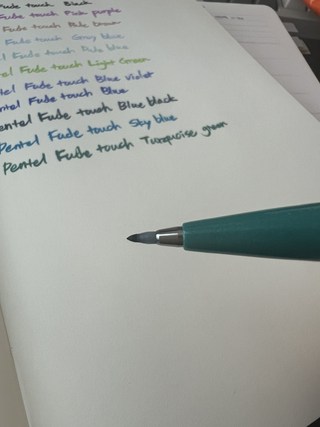 Fude touch Black
Fude touch Pink purple
Fude touch Pale brown
Fude touch Gray blue
Fude touch Pale blue
Fude touch Light Green
Fude touch Blue violet
Fude touch Blue
Fude touch Blue black
Pentel Fude touch Sky blue
Pentel Fude touch Turquoise green